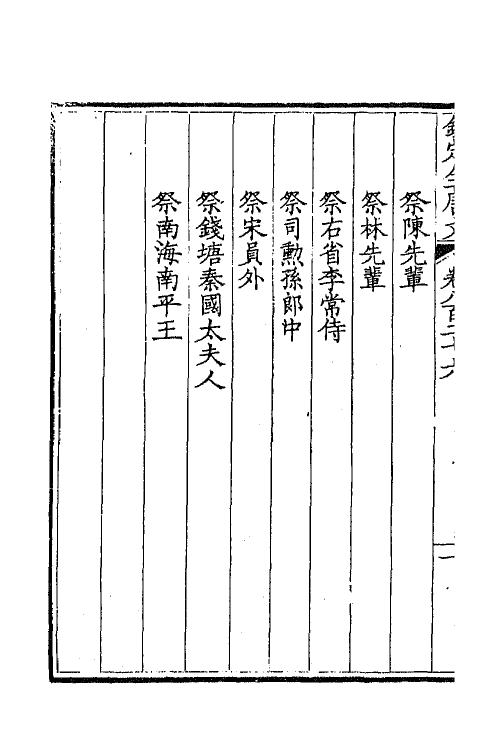 欽定全唐文 卷八百二十六
祭陳先輩
祭林先輩
祭右省李常侍
祭司勲孫郎中
祭宋員外
祭錢塘秦國太夫人
祭南海南平王